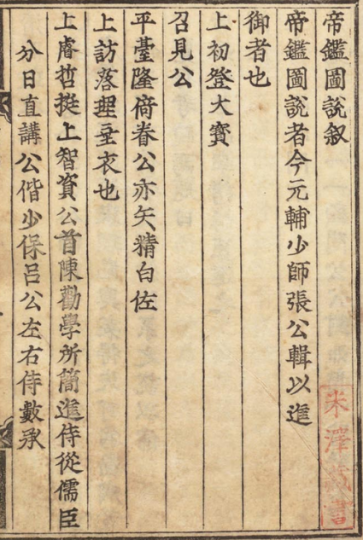 帝鑑圖說叙
帝鑑圖說者今元輔少師張公輯以進
御者也
上初登大寳
召見公
平臺隆倚眷公亦矢精白佐
上訪落理垂衣也
上睿哲挺上智資公首陳勸學所簡進侍從儒臣
分日直講公偕少保呂公左右侍數承
朱澤藏書